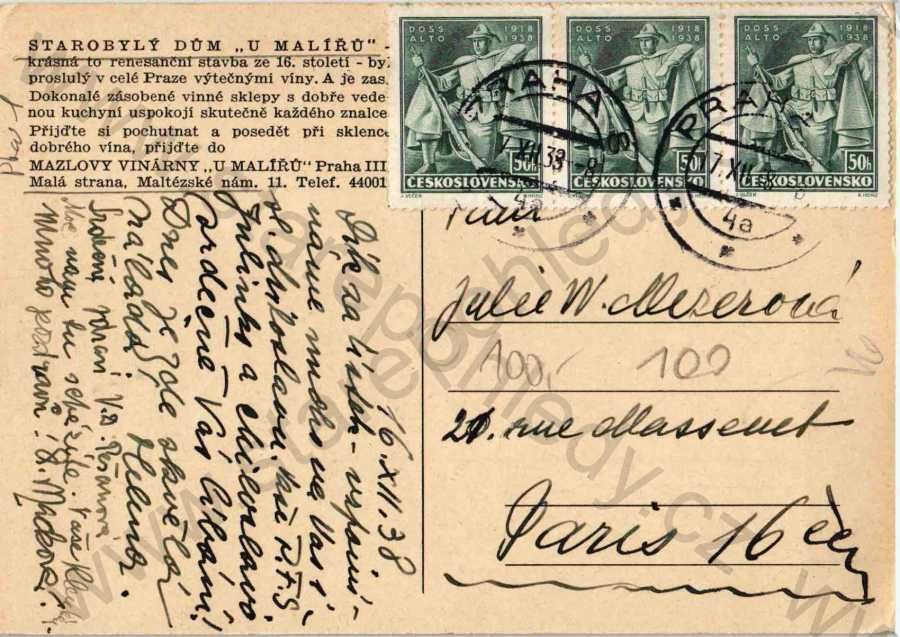 STAROBYLÝ DŮM „U MALÍŘŮ" -
krásná to renesanční stavba ze 16. století - byl
proslulý v celé Praze výtečnými víny. A je zas.
Dokonalé zásobené vinné sklepy s dobře vede-
nou kuchyní uspokojí skutečně každého znalce
Přijďte si pochutnat a posedět při sklence
dobrého vína, přijďte do
MAZLOVY VINÁRNY „U MALÍŘŮ" Praha III
Malá strana, Maltézské nám. 11. Telef. 44001
DOSS ALTO 1918 1938
50h
ČESKOSLOVENSKO
DOSS ALTO 1918 1938
50h
ČESKOSLOVENSKO
DOSS ALTO 1918 1938
50h
ČESKOSLOVENSKO
PRAHA 8
XII 38
4a
PRAHA
17.XII.38
4a
16.XII.38
Dík za lístek - vzpomí-
náme mnoho na Vás i
Julinko a
srdečně Vás líbám!
Dnes je zde skvělá
nálada. Helena
Srdečně zdraví V. D.
Mnoho pozdravů!
Julie W. Mezerová
100,- 100
21. rue Massenet
Paris 16e
www.starepohledy.cz